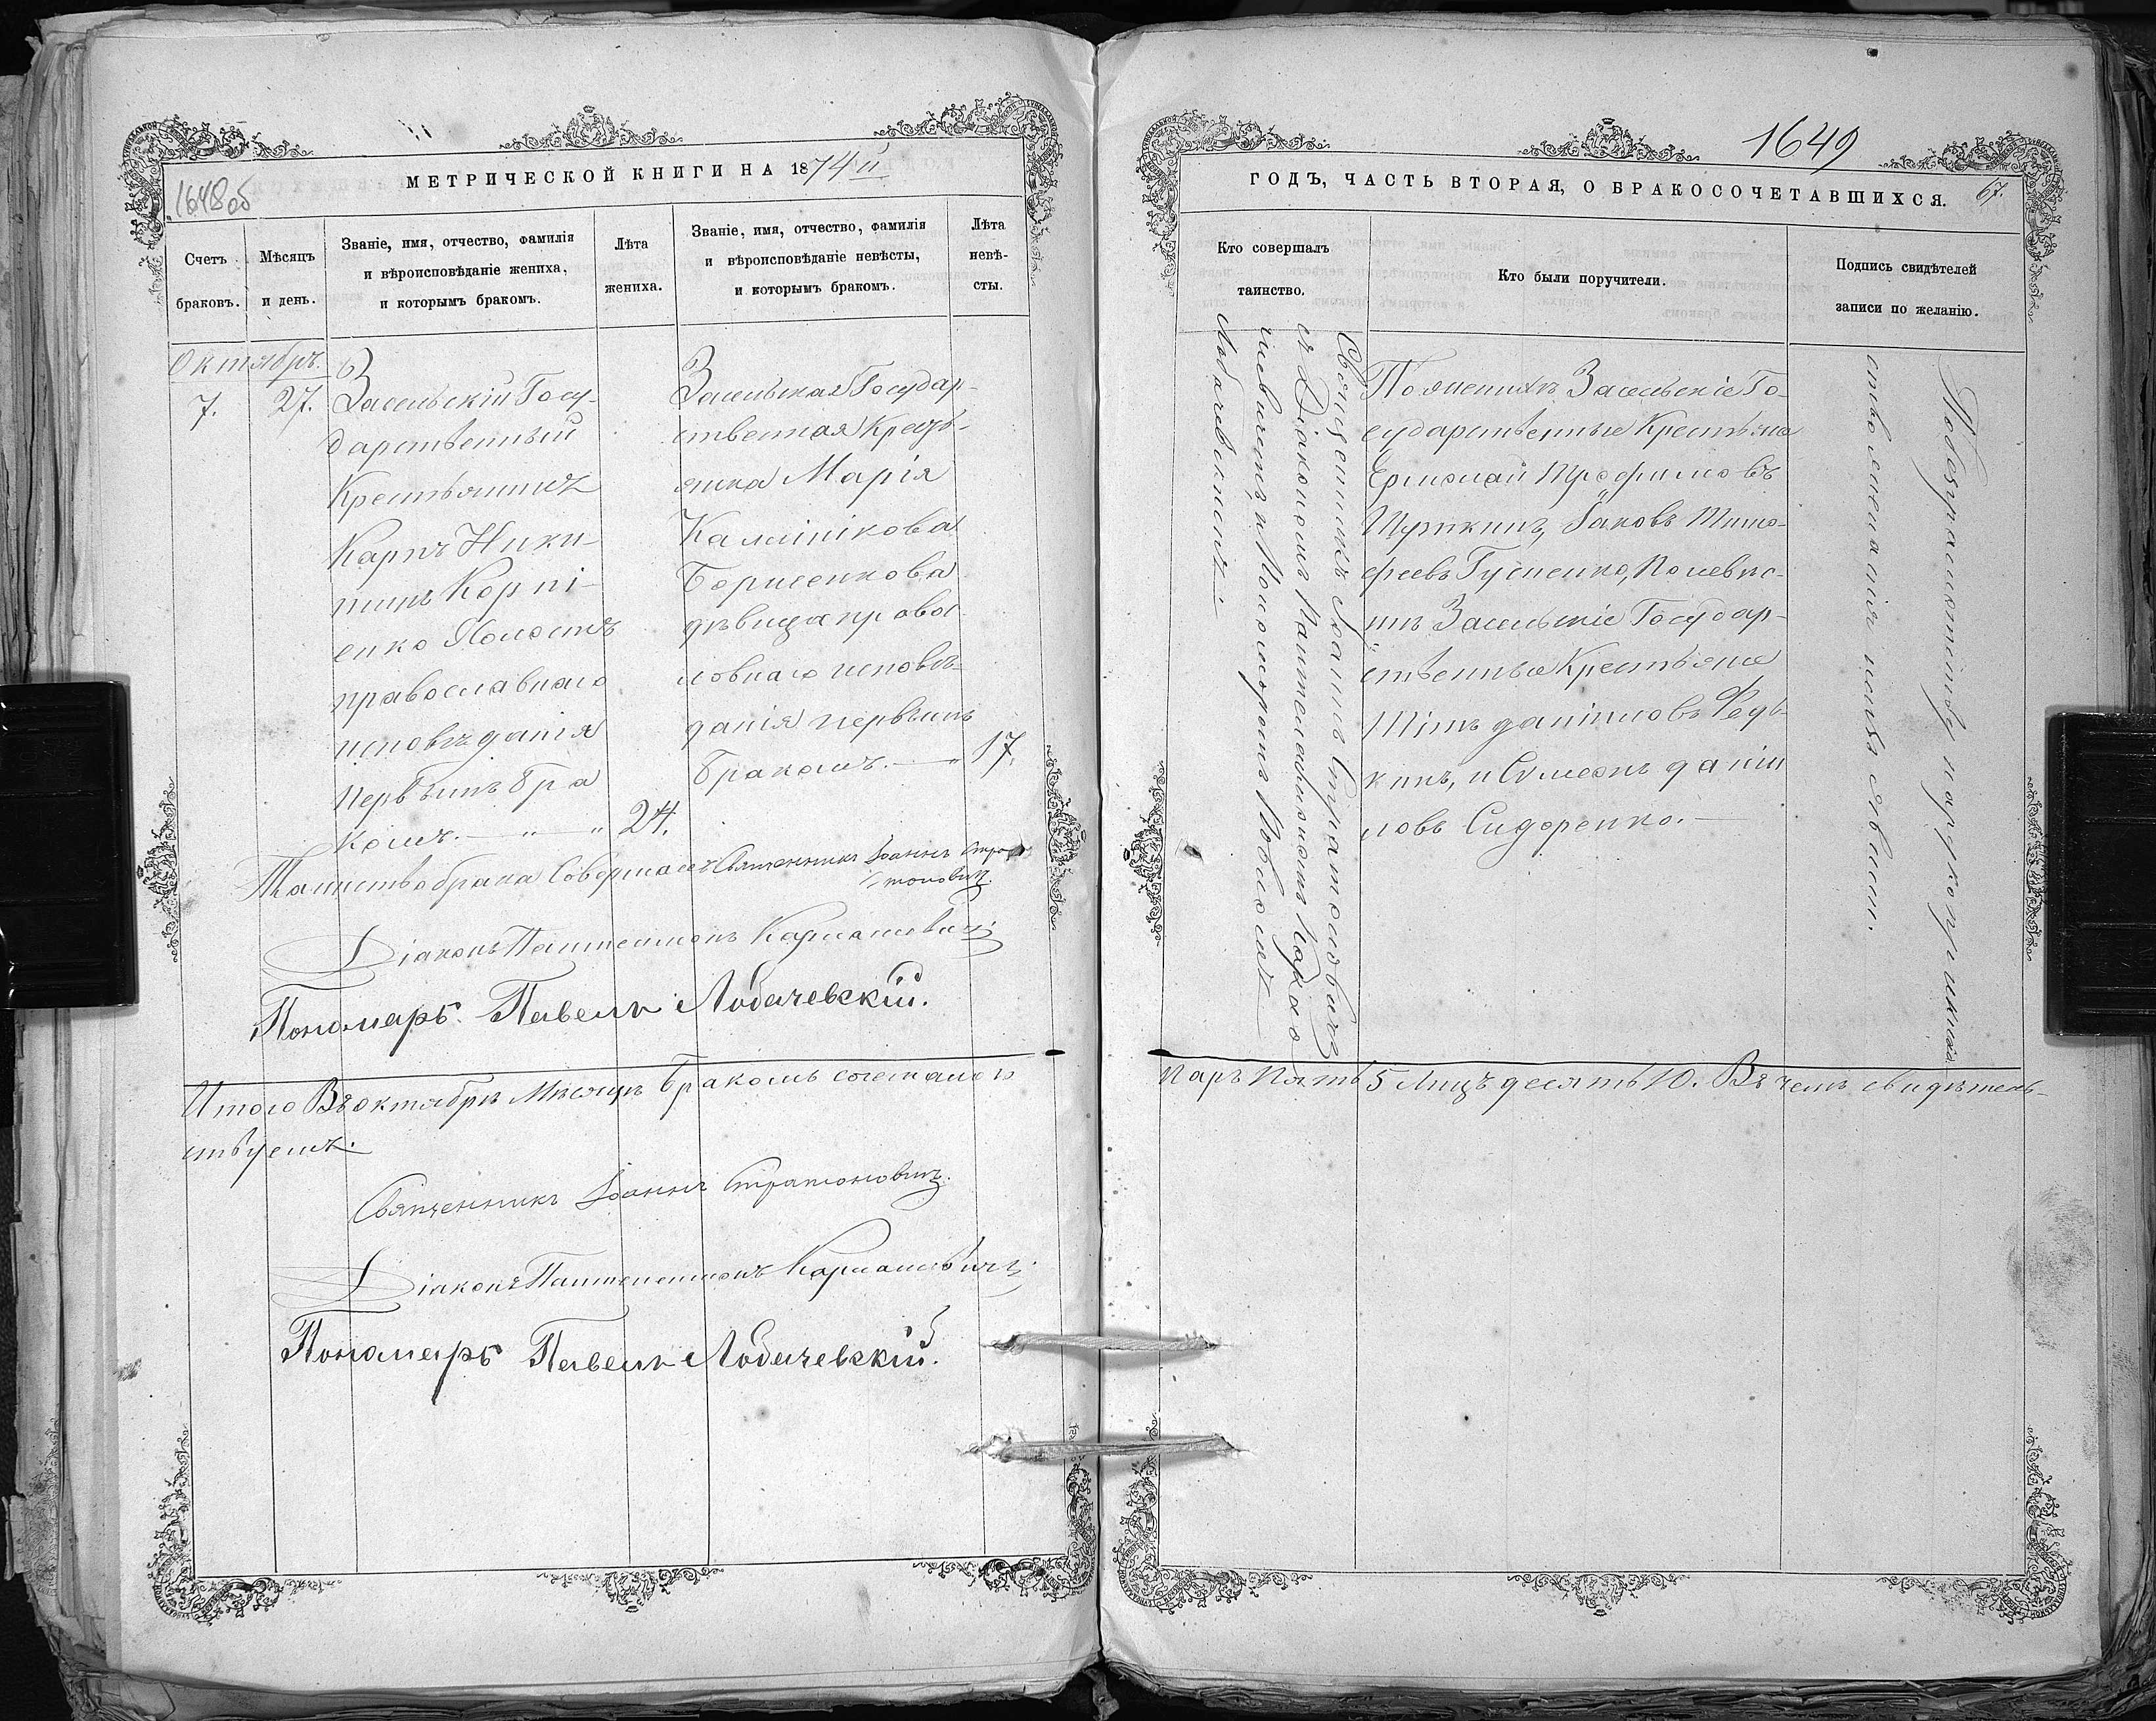 МЕТРИЧЕСКОЙ КНИГИ НА 1874й
1648об
Счетъ браковъ.
Мѣсяцъ и день.
Званіе, имя, отчество, фамилія
и вѣроисповѣданіе жениха,
и которымъ бракомъ.
Лѣта
жениха.
Званіе, имя, отчество, фамилія
и вѣроисповѣданіе невѣсты,
и которымъ бракомъ.
Лѣта
невѣ-
сты.
Октябрь.
7.
27.
Засельскій Госу-
дарственный
Крестьянинъ
Карпъ Ники-
тинъ Корні-
енко Холостъ
православнаго
исповѣданія
первымъ бра
комъ.
24.
Засельская Государ-
ственная Кресть-
янка Марія
Калинікова
Борисенкова
дѣвица правос-
лавнаго исповѣ-
данія первымъ
бракомъ.
17.
Таинство брака Совершалъ Священникъ Іоаннъ Стра-
тоновичъ.
Діаконъ Пантелеимонъ
Пономарь Павелъ Лобачевскій.
Итого Въ октябрѣ Мѣсяцѣ бракомъ сочеталось
ствуемъ:
Священникъ Іоаннъ Стратоновичъ.
Діаконъ Пантелеимонъ
Пономарь Павелъ Лобачевскій.
1649
67.
ГОДЪ, ЧАСТЬ ВТОРАЯ, О БРАКОСОЧЕТАВШИХСЯ.
Кто совершалъ
таинство.
Кто были поручители.
Подпись свидѣтелей
записи по желанію.
Священникъ Іоаннъ Стратоновичъ
съ Діакономъ Пантелеимономъ
и Пономаремъ Павломъ
Лобачевскимъ
По женихѣ Засельскіе Го-
сударственные Крестьяне
Ермолай Трофимовъ
Шуткинъ, Іаковъ Тимо-
феевъ Гусленко, По невѣс-
тѣ Засельскіе Государ-
ственные Крестьяне
Титъ Даніиловъ Редь-
кинъ, и Симеонъ Даніи
ловъ Сидоренко.
По безграмотству
паръ пять 5 лицъ десять 10. Въ чемъ свидѣтель-